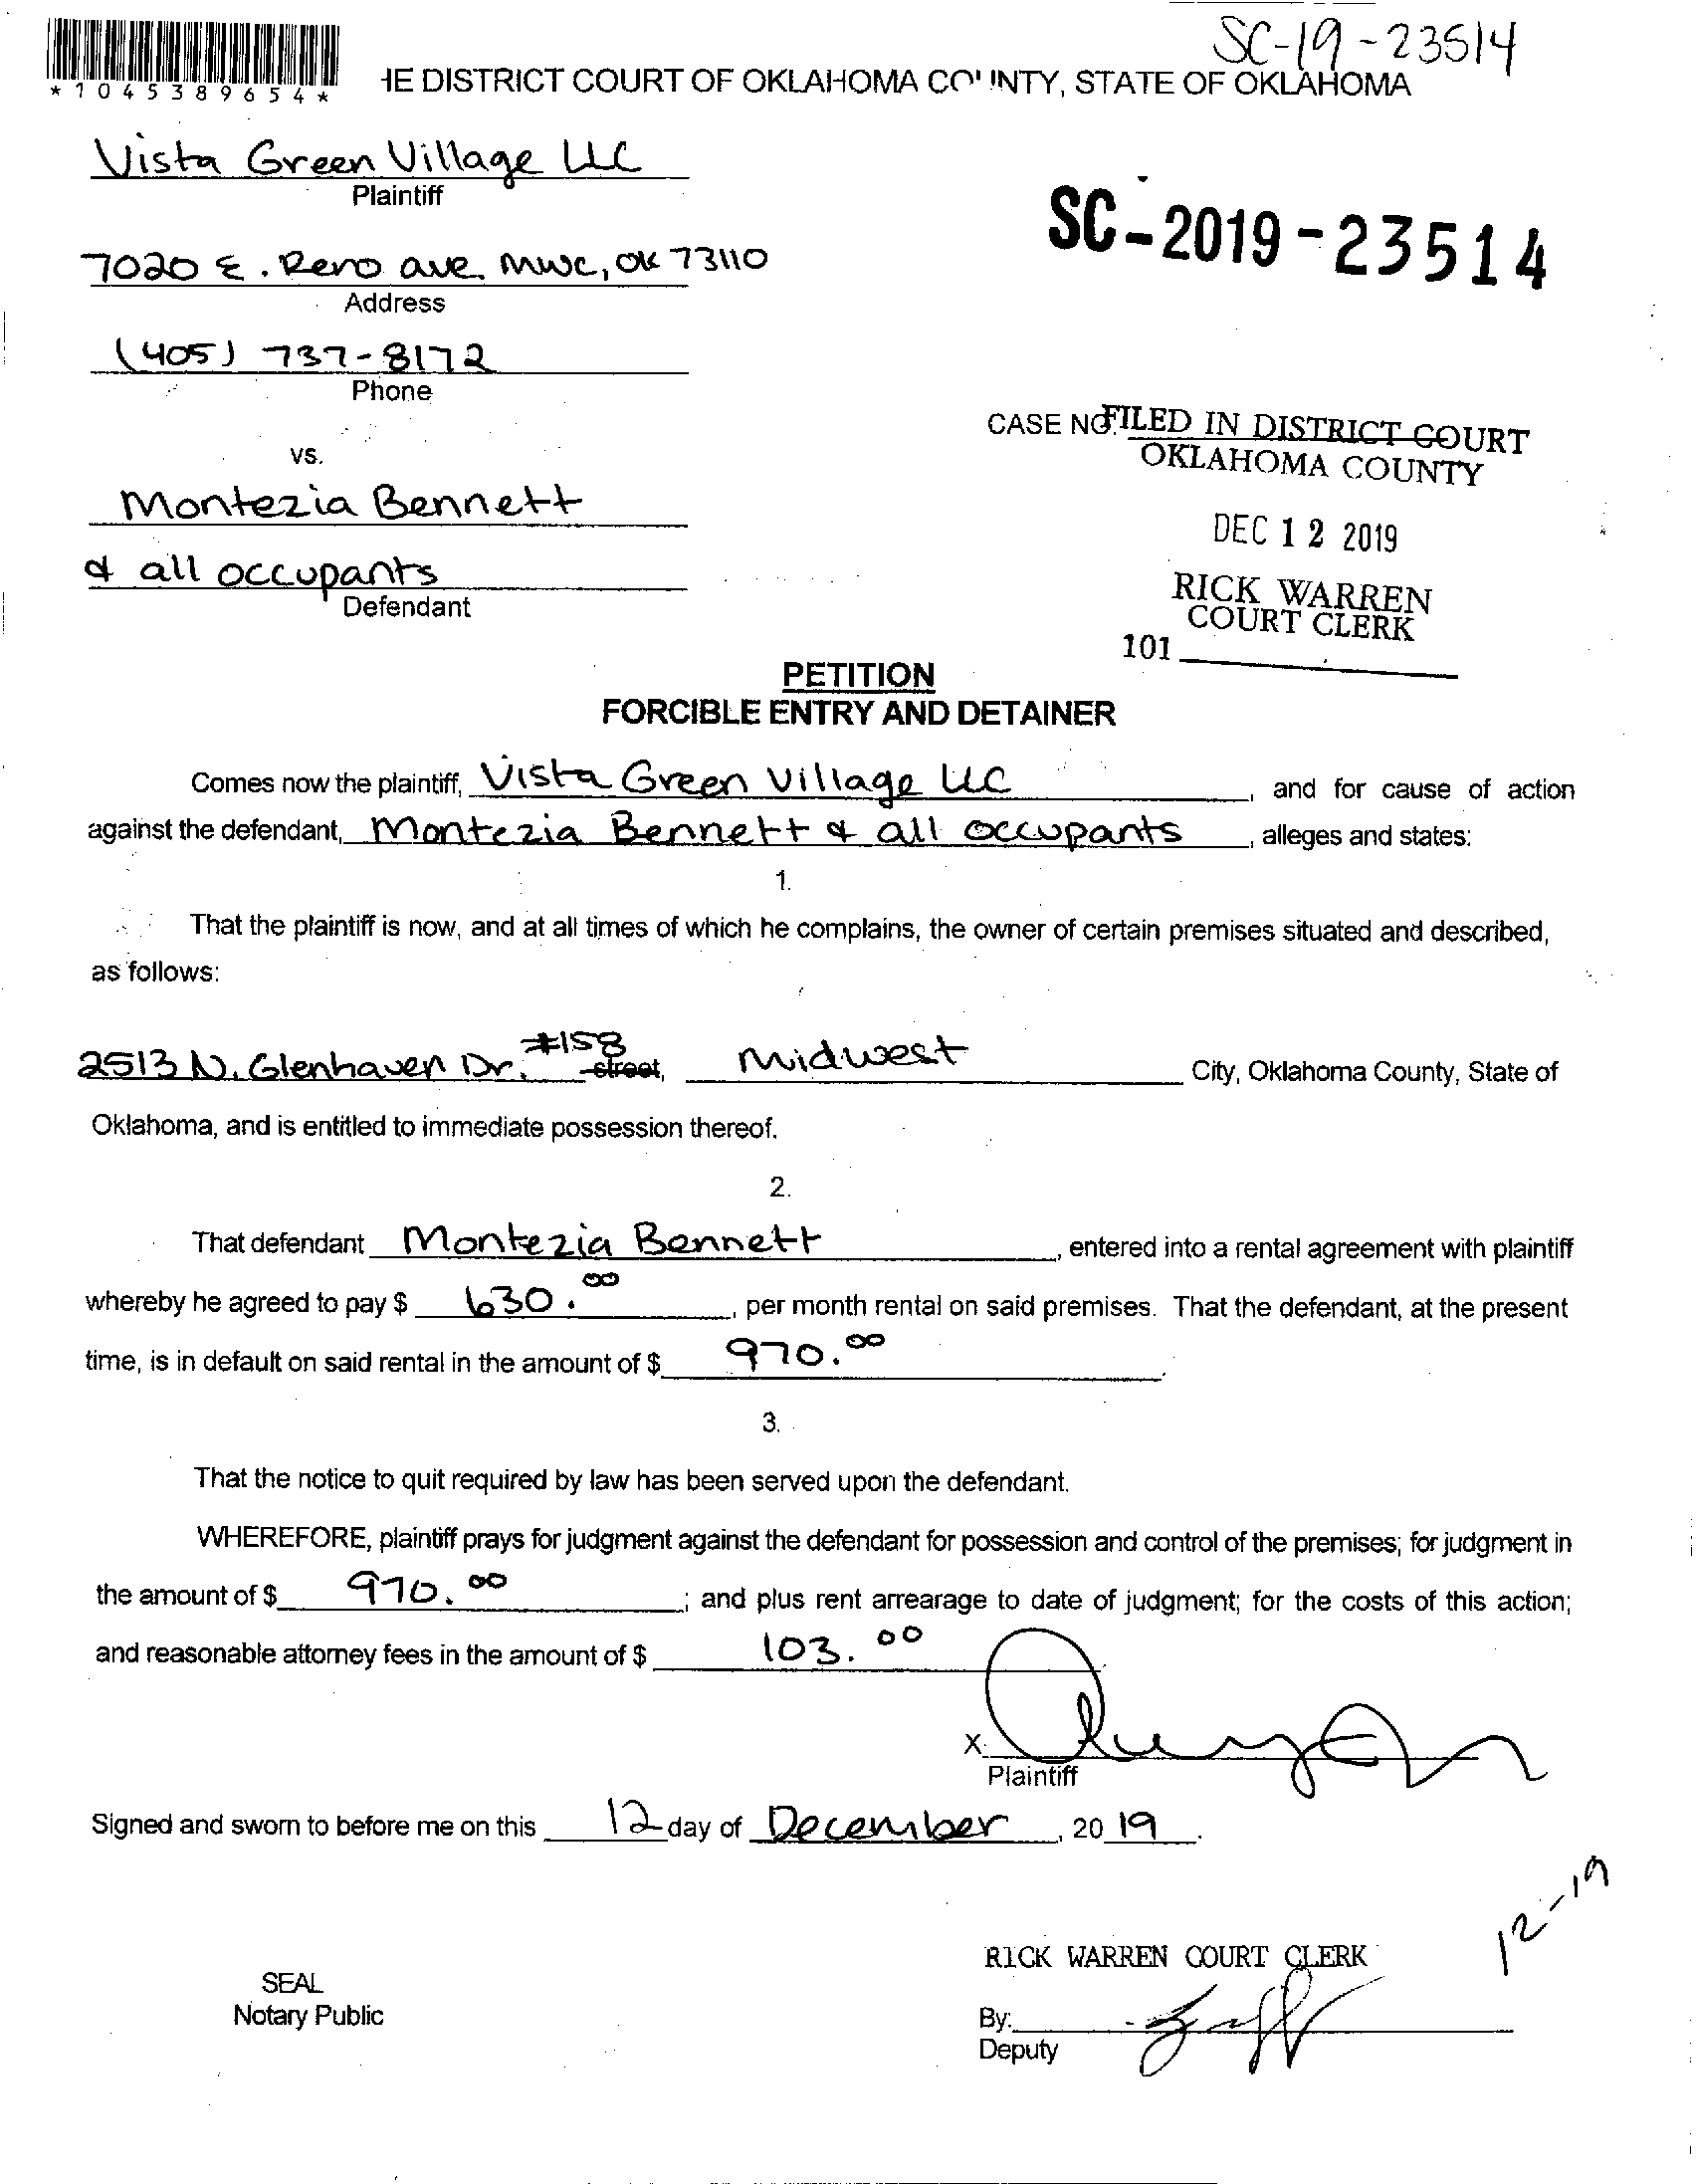 SC-19-23514
*1045389654*
HE DISTRICT COURT OF OKLAHOMA COUNTY, STATE OF OKLAHOMA
Vista Green Village LLC
Plaintiff
SC-2019-23514
7020 E. Reno ave. MWC, OK 73110
Address
(405) 737-8172
Phone
CASE NO.
FILED IN DISTRICT COURT
OKLAHOMA COUNTY
vs.
Montezia Bennett
DEC 12 2019
& all occupants
Defendant
RICK WARREN
COURT CLERK
101
PETITION
FORCIBLE ENTRY AND DETAINER
Comes now the plaintiff, Vista Green Village LLC, and for cause of action
against the defendant, Montezia Bennett & all occupants, alleges and states:
1.
That the plaintiff is now, and at all times of which he complains, the owner of certain premises situated and described,
as follows:
2513 N. Glenhaven Dr. #158 street, Midwest City, Oklahoma County, State of
Oklahoma, and is entitled to immediate possession thereof.
2.
That defendant Montezia Bennett, entered into a rental agreement with plaintiff
whereby he agreed to pay $ 630.00, per month rental on said premises. That the defendant, at the present
time, is in default on said rental in the amount of $ 970.00.
3.
That the notice to quit required by law has been served upon the defendant.
WHEREFORE, plaintiff prays for judgment against the defendant for possession and control of the premises; for judgment in
the amount of $ 970.00; and plus rent arrearage to date of judgment; for the costs of this action;
and reasonable attorney fees in the amount of $ 103.00
X
Plaintiff
Signed and sworn to before me on this 12 day of December, 20 19.
12-19
RICK WARREN COURT CLERK
SEAL
Notary Public
By:
Deputy